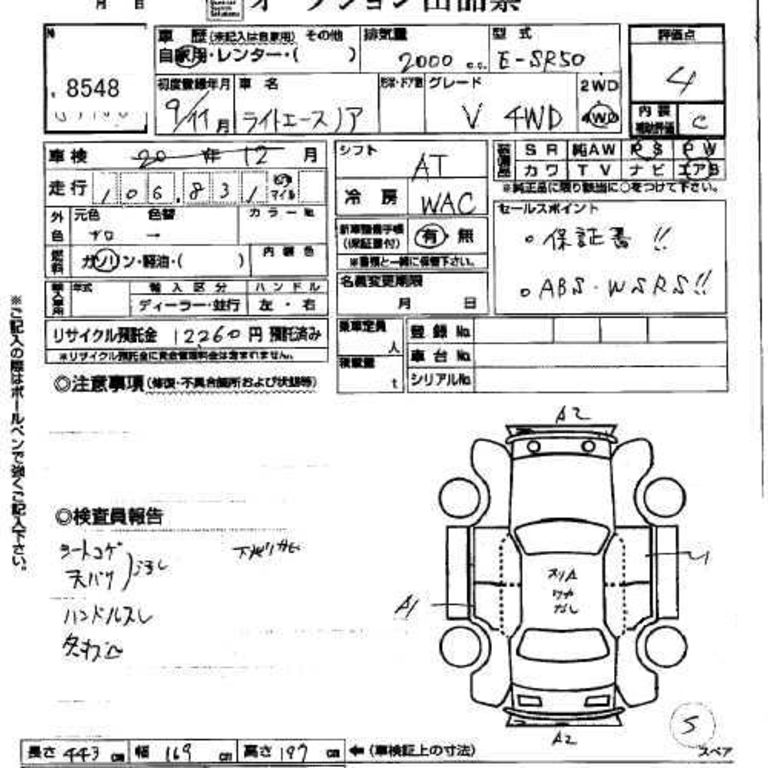 月 日
オークション出品票
№ 8548
車歴(未記入は自家用) その他
自家用・レンター・( )
排気量
2000 c.c.
型式
E-SR50
評価点
4
内装
補助評価
C
初度登録年月
9/11月
車名
ライトエースノア
形状・ドア数
グレード
V 4WD
2WD
4WD
車検 20年12月
走行 106,831 マイル
外色
元色
色替
カラー№
→
燃料
ガソリン・軽油・( )
内装色
輸入車用
年式
輸入区分
ディーラー・並行
ハンドル
左・右
リサイクル預託金 12260円 預託済み
※リサイクル預託金に資金管理料金は含まれません。
シフト
AT
冷房
WAC
新車整備手帳
(保証書付)
有・無
※書類と一緒に保管下さい。
名義変更期限
月 日
乗車定員
人
積載量
t
登録№
車台№
シリアル№
装備品
SR 純AW PS PW
カワ TV ナビ エアB
※純正品に限り該当に○をつけて下さい。
セールスポイント
。保証書!!
。ABS・WSRS!!
※ご記入の際はボールペンで強くご記入下さい。
◎注意事項(修復・不具合箇所および状態等)
◎検査員報告
シートコゲ
天バリ
ハンドルスレ
A2
A1
スリA
ワヤ
なし
A2
S
スペア
長さ 443 cm 幅 169 cm 高さ 197 cm ←(車検証上の寸法)